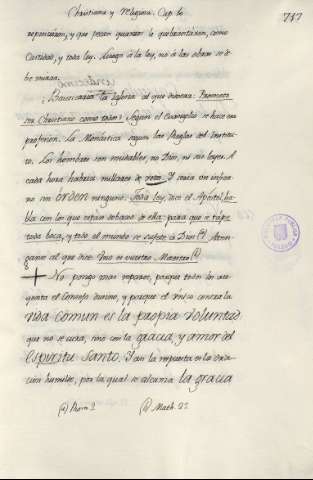 Christiana y Religiosa. Cap. 6. 717
reparacion, y que pecan quando la quebrantáran, como
Castidad, y toda ley. Luego á la ley, no á las obras se de-
be mirar.
¿Bautizaria la Iglesia al que dixera: Prometo
ser Christiano como todos? Segun el Evangelio se hace esa
profesion. La Monástica segun las Reglas del Institu-
to. Los hombres son mudables, no Dios, ni sus leyes. A
cada hora habria millares de votos. Y seria un infier-
no sin orden ninguno. Toda ley, dice el Apóstol, ha-
bla con los que estan debaxo de ella: para que se tape
toda boca, y todo el mundo se sujete á Dios (a). Aten-
game al que dice: Uno es vuestro Maestro (b)
8
No pongo mas reparos, porque todos los
el Consejo divino, y porque el único contra la
vida comun es la propia voluntad,
que no se cura, sino con la gracia, y amor del
Espiritu Santo. Y an la respuesta es la ora-
cion humilde, por la qual se alcanza la gracia
(a) Rom. 3. (b) Math. 23.